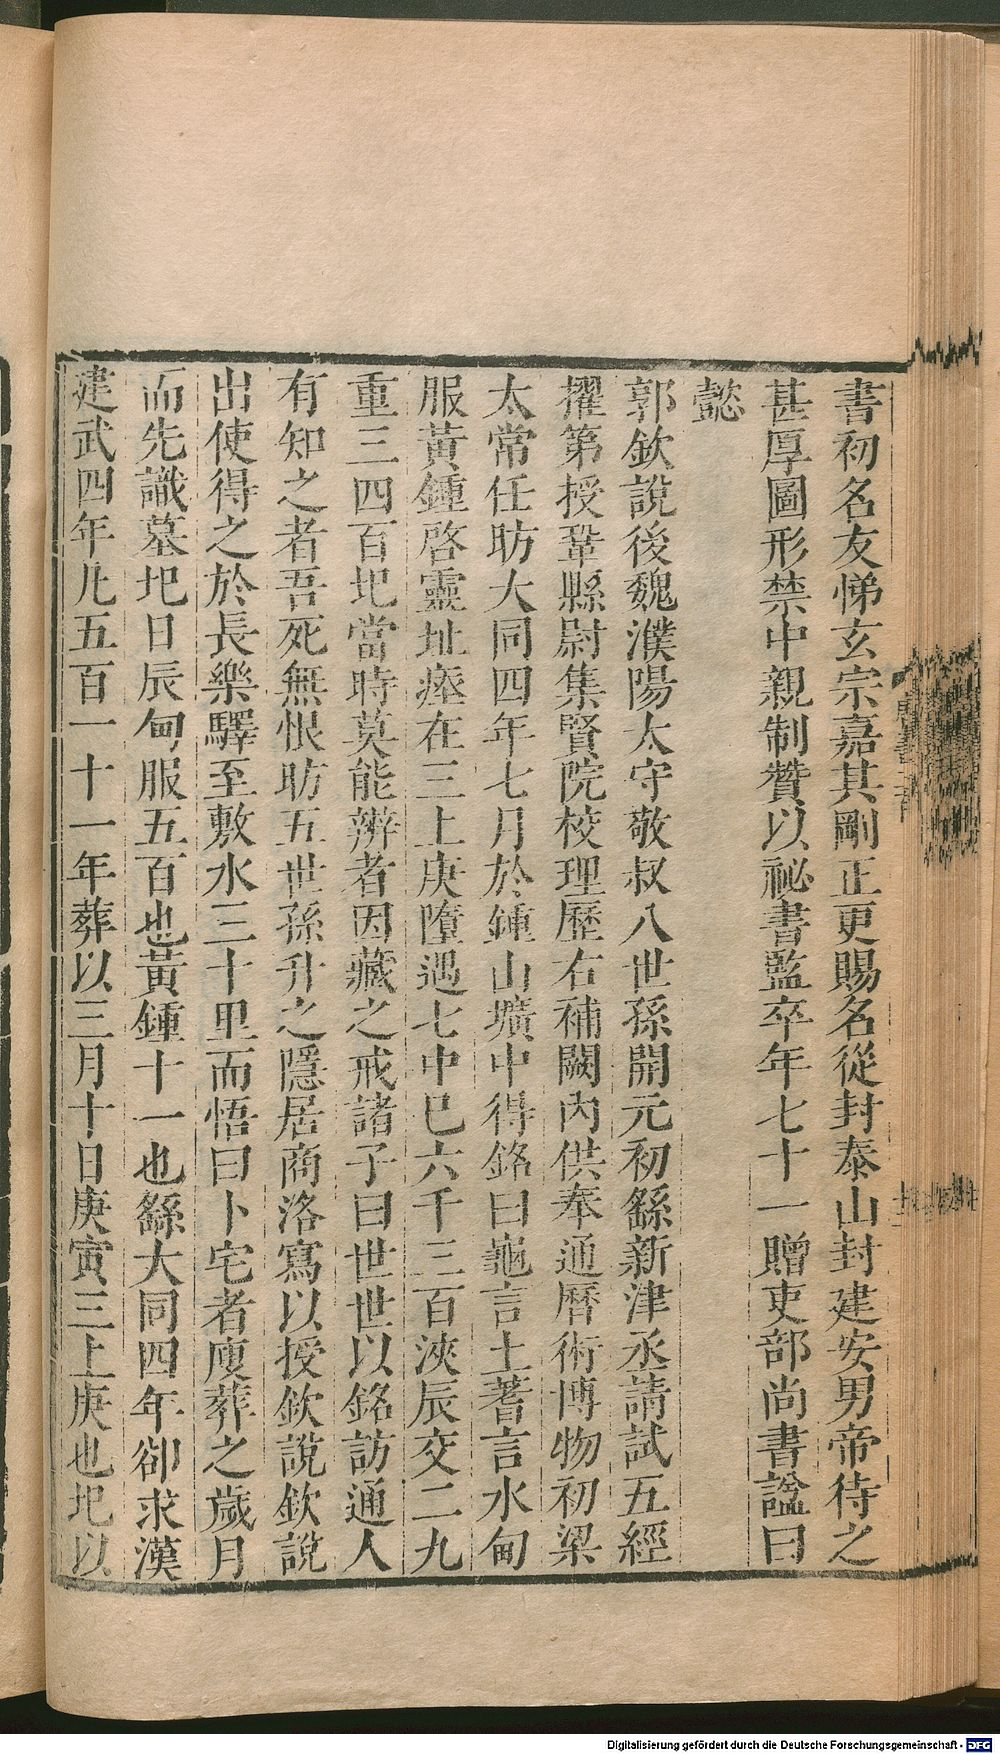 書初名友悌玄宗嘉其剛正更賜名從封泰山封建安男帝待之
甚厚圖形禁中親制贊以祕書監卒年七十一贈吏部尚書諡曰
懿
郭欽說後魏濮陽太守敬叔八世孫開元初繇新津丞請試五經
擢第授鞏縣尉集賢院校理歷右補闕內供奉通曆術博物初梁
太常任昉大同四年七月於鍾山壙中得銘曰龜言土蓍言水甸
服黃鍾啓靈址瘞在三上庚墮遇七中巳六千三百浹辰交二九
重三四百圯當時莫能辨者因藏之戒諸子曰世世以銘訪通人
有知之者吾死無恨昉五世孫升之隱居商洛寫以授欽說欽說
出使得之於長樂驛至敷水三十里而悟曰卜宅者廋葬之歲月
而先識墓圯日辰甸服五百也黃鍾十一也繇大同四年卻求漢
建武四年凡五百一十一年葬以三月十日庚寅三上庚也圯以
Digitalisierung gefördert durch die Deutsche Forschungsgemeinschaft - DFG